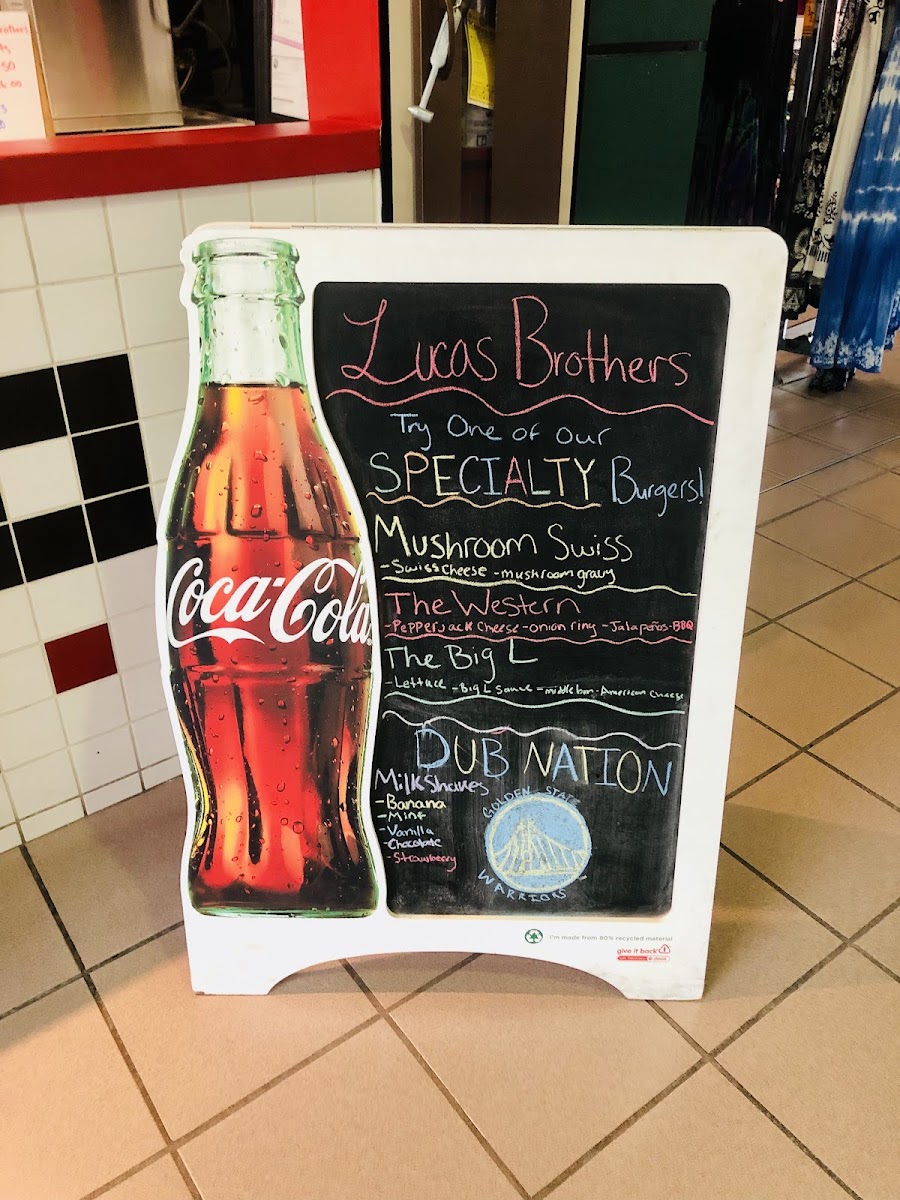 Lucas Brothers
Try One of our
SPECIALTY Burgers!
Mushroom Swiss
-Swiss cheese -mushroom gravy
The Western
-Pepperjack cheese -onion ring -Jalapeños-BBQ
The Big L
-Lettuce -Big L Sauce -middle bun -American cheese
DUB NATION
Milkshakes
-Banana
-Mint
-Vanilla
-Chocolate
-Strawberry
GOLDEN STATE
WARRIORS
Coca-Cola
I'm made from 80% recycled material
give it back